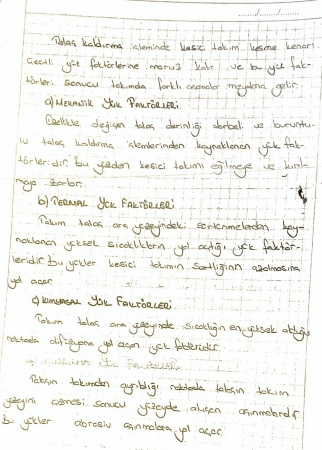 Talaş kaldırma işleminde kesici takım kesme kenarı
çeşitli yük faktörlerine maruz kalır ve bu yük fak-
törleri sonucu takımda farklı aşınmalar meydana gelir.
a) MEKANİK YÜK FAKTÖRLERİ
Özellikle değişen talaş derinliği darbeli ve buruntu-
lu talaş kaldırma işlemlerinden kaynaklanan yük fak-
törleridir. bu yüzden kesici takımı eğilmeye ve kırıl-
maya zorlar.
b) TERMAL YÜK FAKTÖRLERİ
Takım talaş ara yüzeyindeki sürtünmelerden kay-
naklanan yüksek sıcaklıkların yol açtığı yük faktör-
leridir. bu yükler kesici takımın sertliğinin azalmasına
yol açar.
c) KİMYASAL YÜK FAKTÖRLERİ
Takım talaş ara yüzeyinde sıcaklığın en yüksek olduğu
noktada difüzyona yol açan yük faktörleridir.
Talaşın takımdan ayrıldığı noktada talaşın takım
yüzeyini çizmesi sonucu yüzeyde oluşan aşınmalardır
bu yükler abrasiv aşınmalara yol açar.